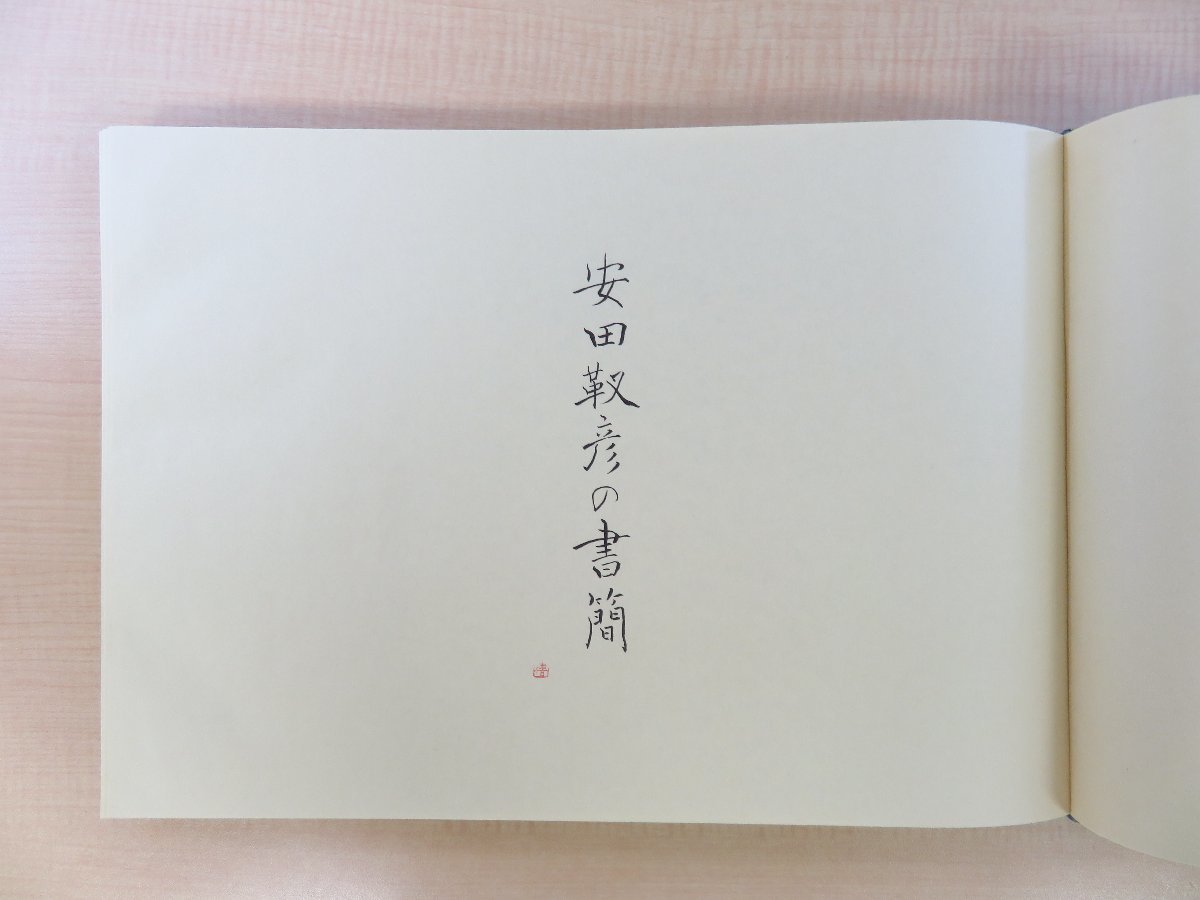 安田靫彦の書簡